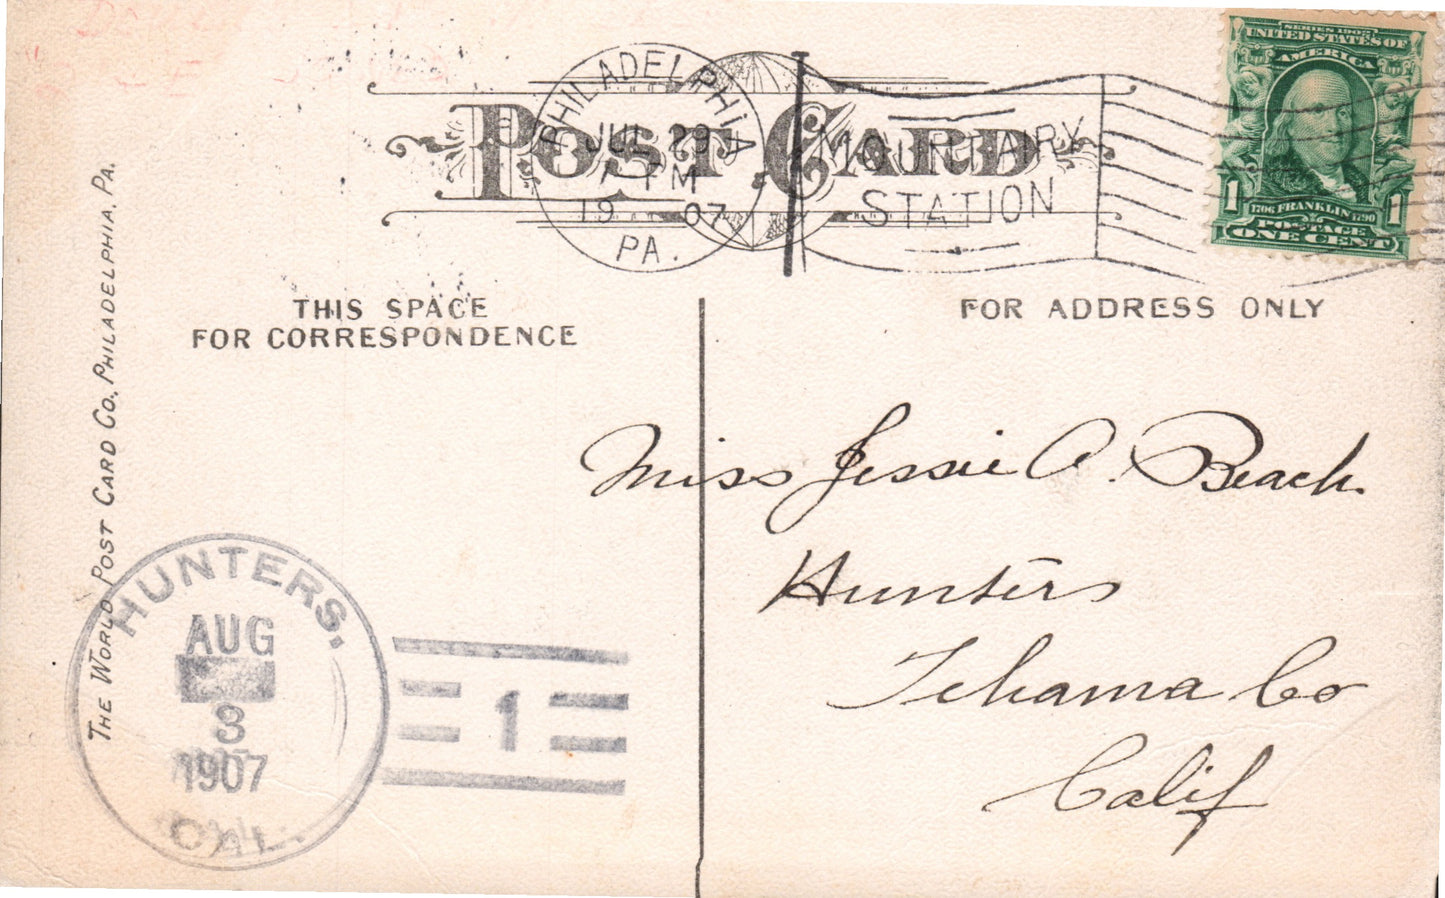 POST CARD
PHILADELPHIA
JUL 29
1 PM
19 07
PA.
MOUNT AIRY
STATION
SERIES 1902
UNITED STATES OF
AMERICA
1 1706 FRANKLIN 1790 1
POSTAGE
ONE CENT
THIS SPACE
FOR CORRESPONDENCE
FOR ADDRESS ONLY
THE WORLD POST CARD CO., PHILADELPHIA, PA.
Miss Jessie A. Beach.
Hunters
Tehama Co
Calif
HUNTERS,
AUG
3
1907
CAL.
1